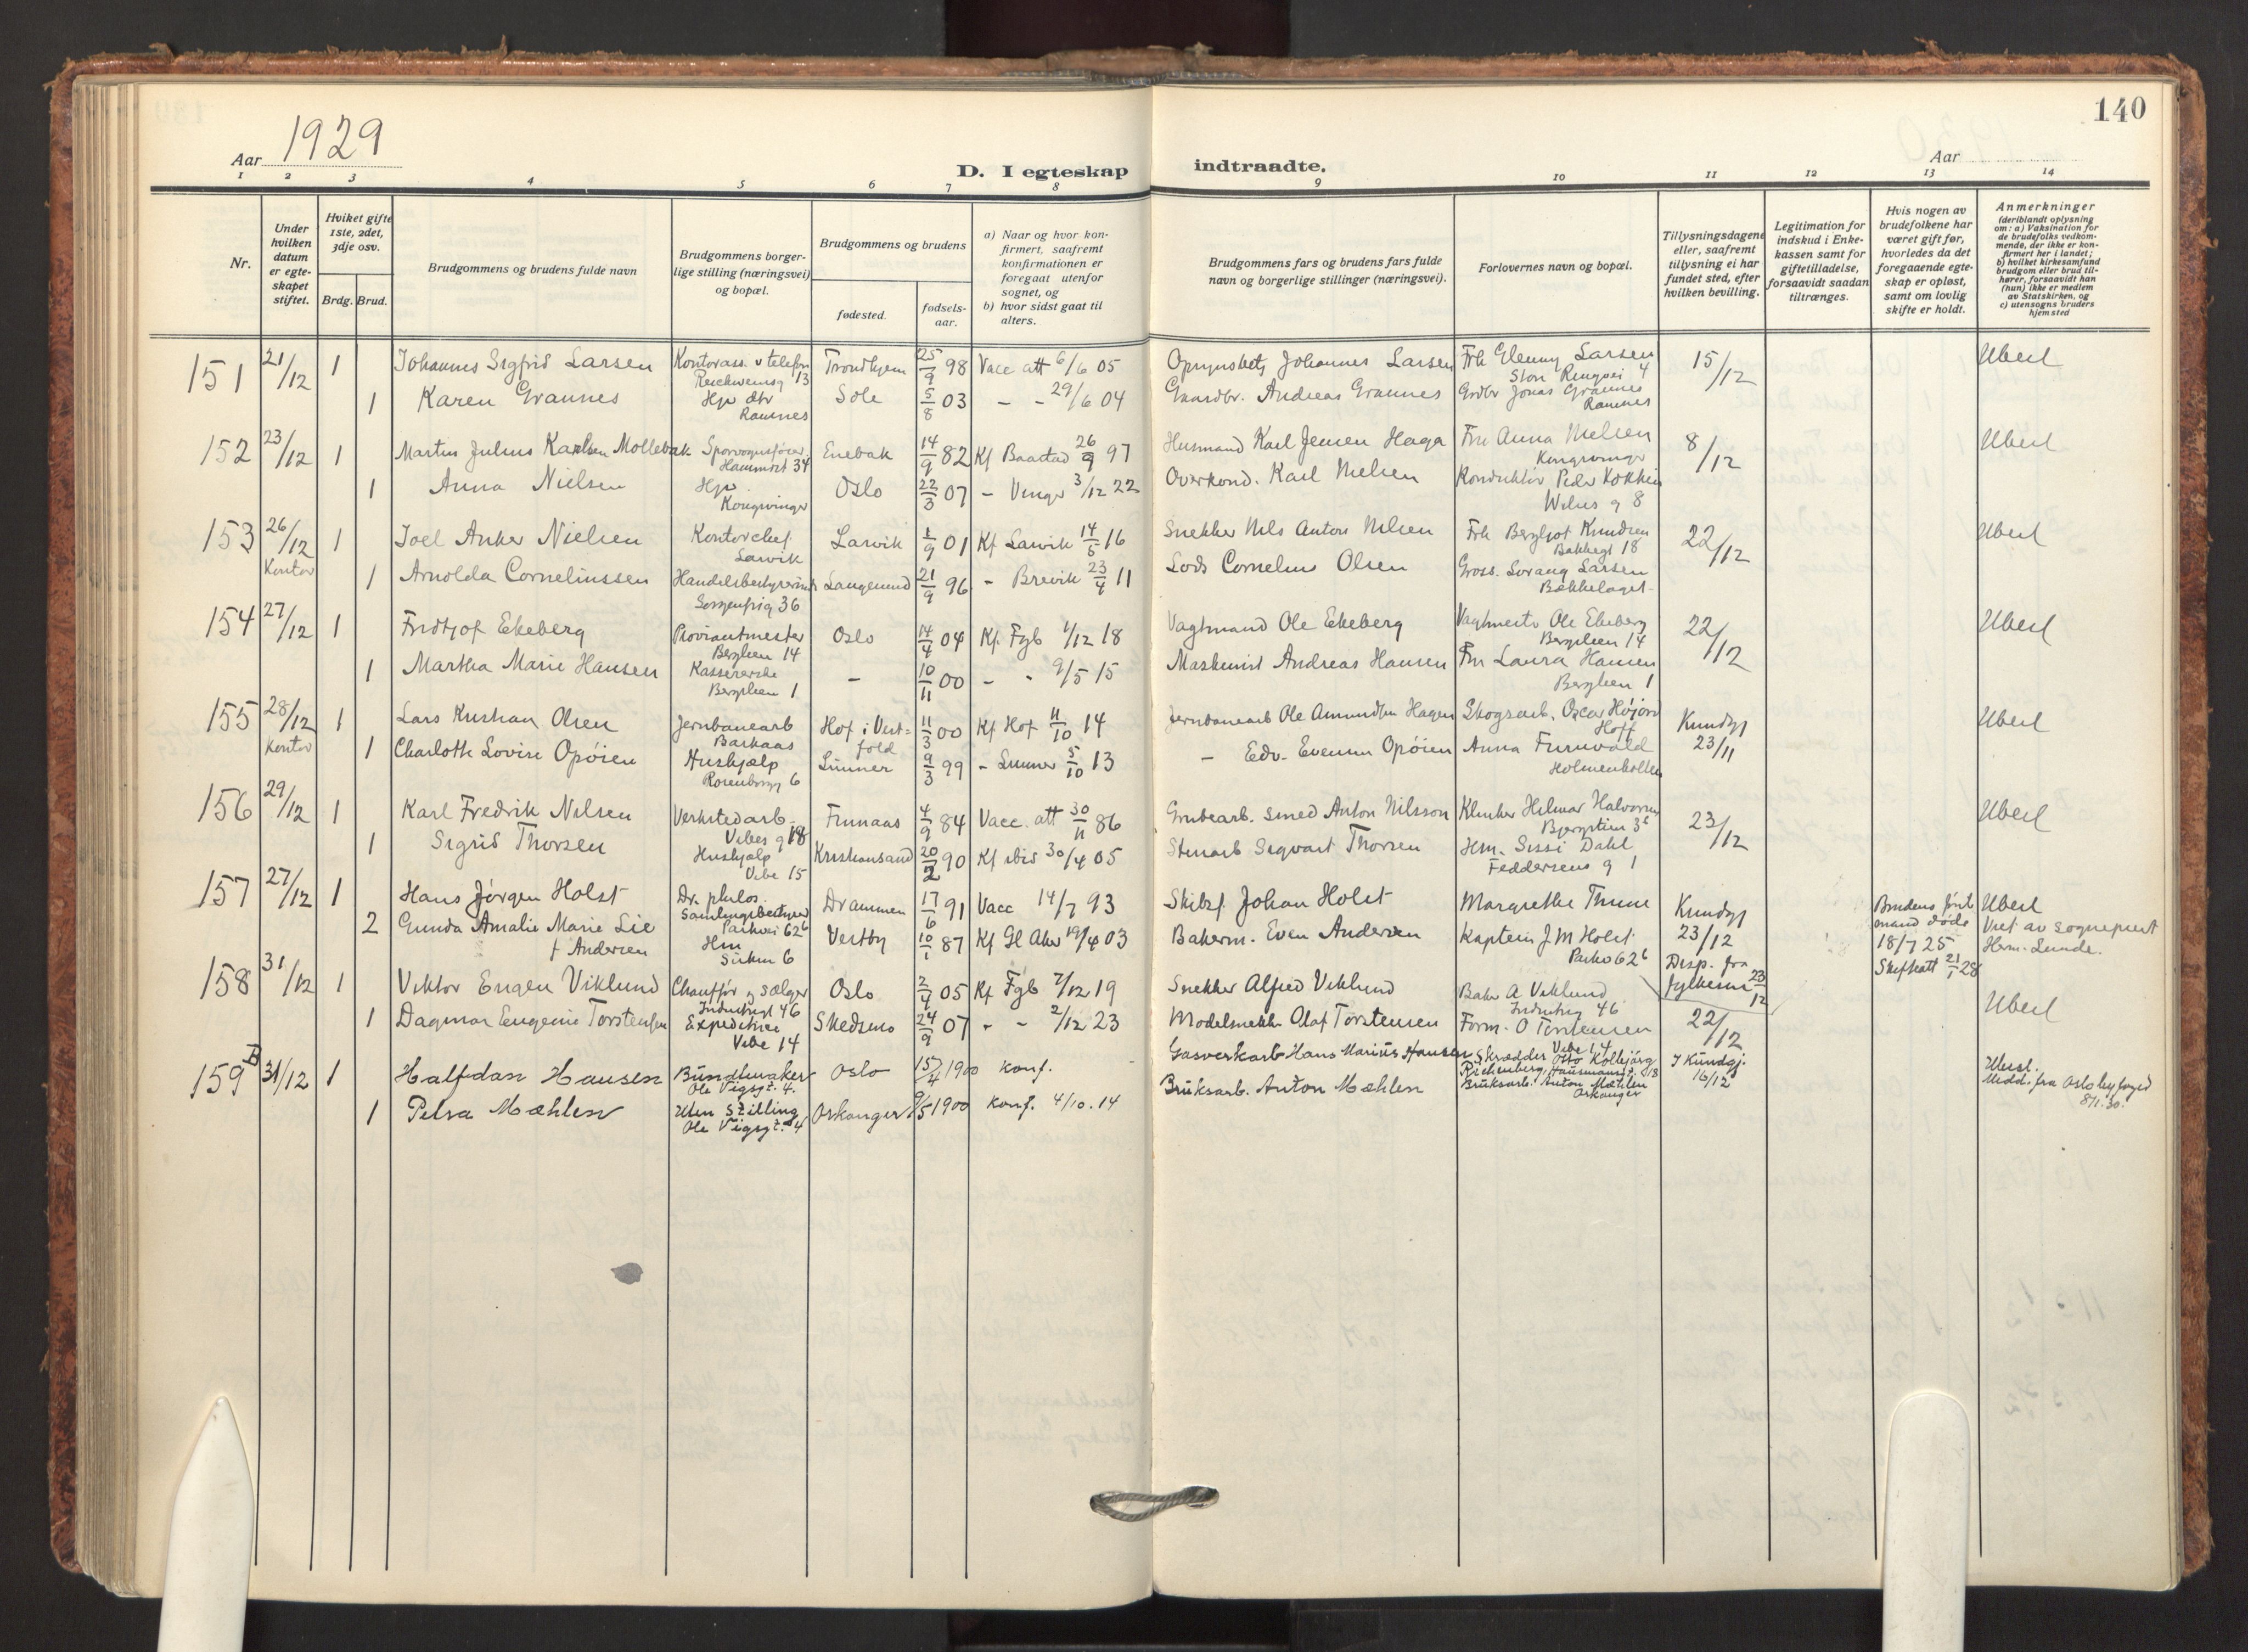 140
Aar 1929
D. I egteskap indtraadte.
Aar
1 2 3 4 5 6 7 8 9 10 11 12 13 14
Nr.
Under hvilken datum er egteskapet stiftet.
Hviket gifte 1ste, 2det, 3dje osv.
Brdg. Brud.
Brudgommens og brudens fulde navn
Brudgommens borgerlige stilling (næringsvei) og bopæl.
Brudgommens og brudens
fødested.
fødsels-aar.
a) Naar og hvor konfirmert, saafremt konfirmationen er foregaat utenfor sognet, og
b) hvor sidst gaat til alters.
Brudgommens fars og brudens fars fulde navn og borgerlige stillinger (næringsvei).
Forlovernes navn og bopæl.
Tillysningsdagene eller, saafremt tillysning ei har fundet sted, efter hvilken bevilling.
Legitimation for indskud i Enkekassen samt for giftetilladelse, forsaavidt saadan tiltrænges.
Hvis nogen av brudefolkene har været gift før, hvorledes da det foregaaende egteskap er opløst, samt om lovlig skifte er holdt.
Anmerkninger (deriblandt oplysning om: a) Vaksination for de brudefolks vedkommende, der ikke er konfirmert her i landet; b) hvilket kirkesamfund brudgom eller brud tilhører, forsaavidt han (hun) ikke er medlem av Statskirken, og c) utensogns bruders hjemsted
151 21/12 1 Johannes Sigfrid Larsen Kontorass. v telefon Trondhjem 25/9 98 Vacc att 6/6 05 Johannes Larsen Frk Glenny Larsen 15/12 Uberl
13 Ringvei 4
1 Karen Grannes Hjv dtr Sole 5/8 03 - - 29/6 04 Gaardbr. Andreas Grannes Grdbr Jonas Grannes
Ramnes Ramnes
152 23/12 1 Martin Julius Karlsen Mollebak Sporvognsfører Enebak 14/9 82 Kf Baastad 26/9 97 Husmand Karl Jensen Haga Fru Anna Nielsen 8/12 Uberl
34 Kongsvinger
1 Anna Nielsen Hjv. Oslo 22/3 07 - Vinger 3/12 22 Overkond. Karl Nielsen Konduktør Peder
Kongsvinger g 8
153 26/12 1 Joel Anker Nielsen Kontorchef Larvik 1/9 01 Kf Larvik 14/5 16 Snekker Nils Anton Nilsen Frk Bergljot Knudsen 22/12 Uberl
Kontor Larvik Bakkegt 18
1 Arnolda Corneliussen Langesund 21/9 96 - Brevik 23/4 11 Lods Cornelius Olsen Gross. Larsen
Sorgenfrig 36 Bækkelaget
154 27/12 1 Fridtjof Ekeberg Proviantmester Oslo 14/4 04 Kf Fgb 1/12 18 Vagtmand Ole Ekeberg Vagtmester Ole Ekeberg 22/12 Uberl
Bergslien 14 Bergslien 14
1 Martha Marie Hansen Kassererske - 10/11 00 - - 9/5 15 Maskinist Andreas Hansen Fru Laura Hansen
Bergslien 1 Bergslien 1
155 28/12 1 Lars Kristian Olsen Jernbanearb Hof i Vestfold 11/3 00 Kf Hof 11/10 14 Jernbanearb Ole Amundsen Hagen Skogsarb. Oscar Højord Kundgj 23/11 Uberl
Kontor Hoff
1 Charlotte Lovise Opøien Hushjælp Lunner 9/3 99 - Lunner 5/10 13 - Edv. Evensen Opøien Anna Furuvald
Rosenborgg 6 Holmenkollen
156 29/12 1 Karl Fredrik Nilsen Verkstedarb. Finnaas 4/9 84 Vacc. att 30/11 86 Grubearb. smed Anton Nilsson Klinker Hilmar Halvorsen 23/12 Uberl
Vibes g 18
1 Sigrid Thorsen Hushjælp Kristiansand 20/2 90 Kf ibid 30/4 05 Stenarb Sigvart Thorsen Hm. Sissi Dahl
Vibe 15 Feddersens g 1
157 27/12 1 Hans Jørgen Holst Dr. philos. Drammen 17/6 91 Vacc 14/7 93 Skibsf Johan Holst Margrethe Thune Kundgj 23/12 Brudens første mand døde 18/7 25 Skifteatt 21/1 28 Uberl
Samlingsbestyrer Parkvei 62b Viet av sogneprest Herm. Lunde.
2 Gunda Amalie Marie Lie Hm Vestby 10/1 87 Kf Gl Aker 19/4 03 Bakerm. Even Andersen Kaptein J M Holst Disp. fra fylkesm 23/12
f Andersen 6 Parkv 62b
158 31/12 1 Viktor Eugen Viklund Chauffør og sælger Oslo 2/4 05 Kf Fgb 7/12 19 Snekker Alfred Viklund Baker A Viklund 22/12 Uberl
Industrigt 46 Industrig 46
1 Dagmar Eugenie Torstensen Expeditrice Skedsmo 24/9 07 - - 2/12 23 Modelsnekk Olaf Torstensen Form. O Torstensen
Vibe 14 Vibe 14
159 B 31/12 1 Halfdan Hansen Bundtmaker Oslo 15/4 1900 konf. Gasverkarb Hans Marius Hansen Skrædder Otto Kolbjørg I Kundgj. 16/12 Uberl.
Ole Vigsgt. 4. Richenberg, Hausmannsgt. 18 Medd. fra Oslo byfoged 8/1.30.
1 Petra Mæhlen Uten stilling Orkanger 9/5 1900 konf. 4/10.14 Bruksarb. Anton Mæhlen Bruksarb. Anton Mæhlen
Ole Vigsgt. 4 Orkanger